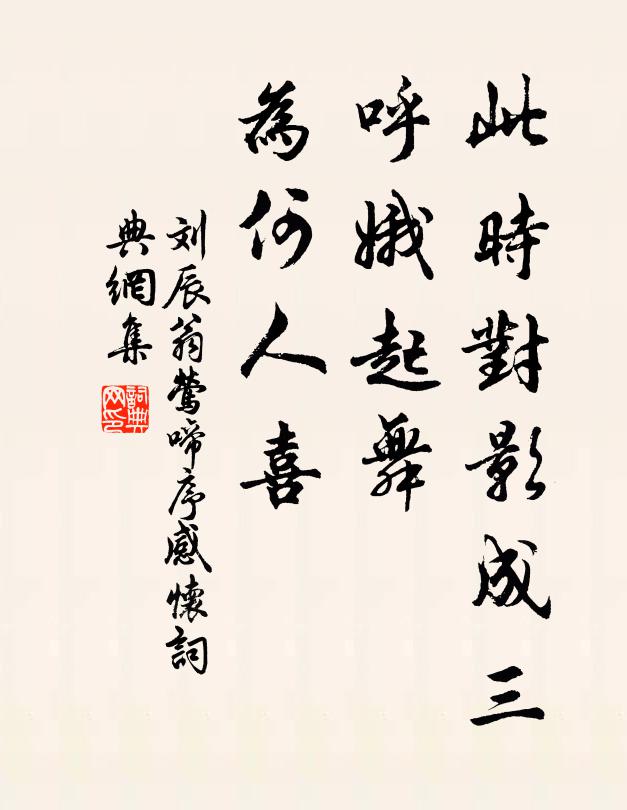 此時對影成三
呼娥起舞
為何人喜
刘辰翁莺啼序感懷詞
典網集
詞典
网印